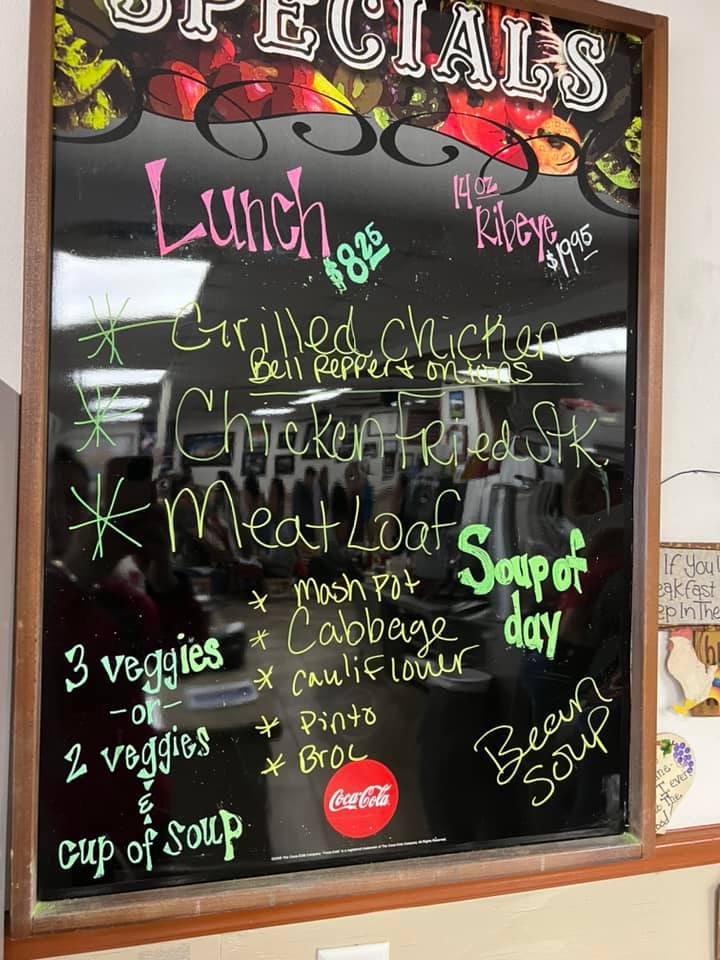 SPECIALS
Lunch
$8.25
14 oz
Ribeye
$19.95
Grilled Chicken
Bell Pepper & onions
Chicken Fried Stk.
Meat Loaf
* Mash Pot
* Cabbage
* Cauliflower
* Pinto
* Broc
3 veggies
-or-
2 veggies
&
cup of soup
Soup of
day
Bean
Soup
Coca-Cola
If You